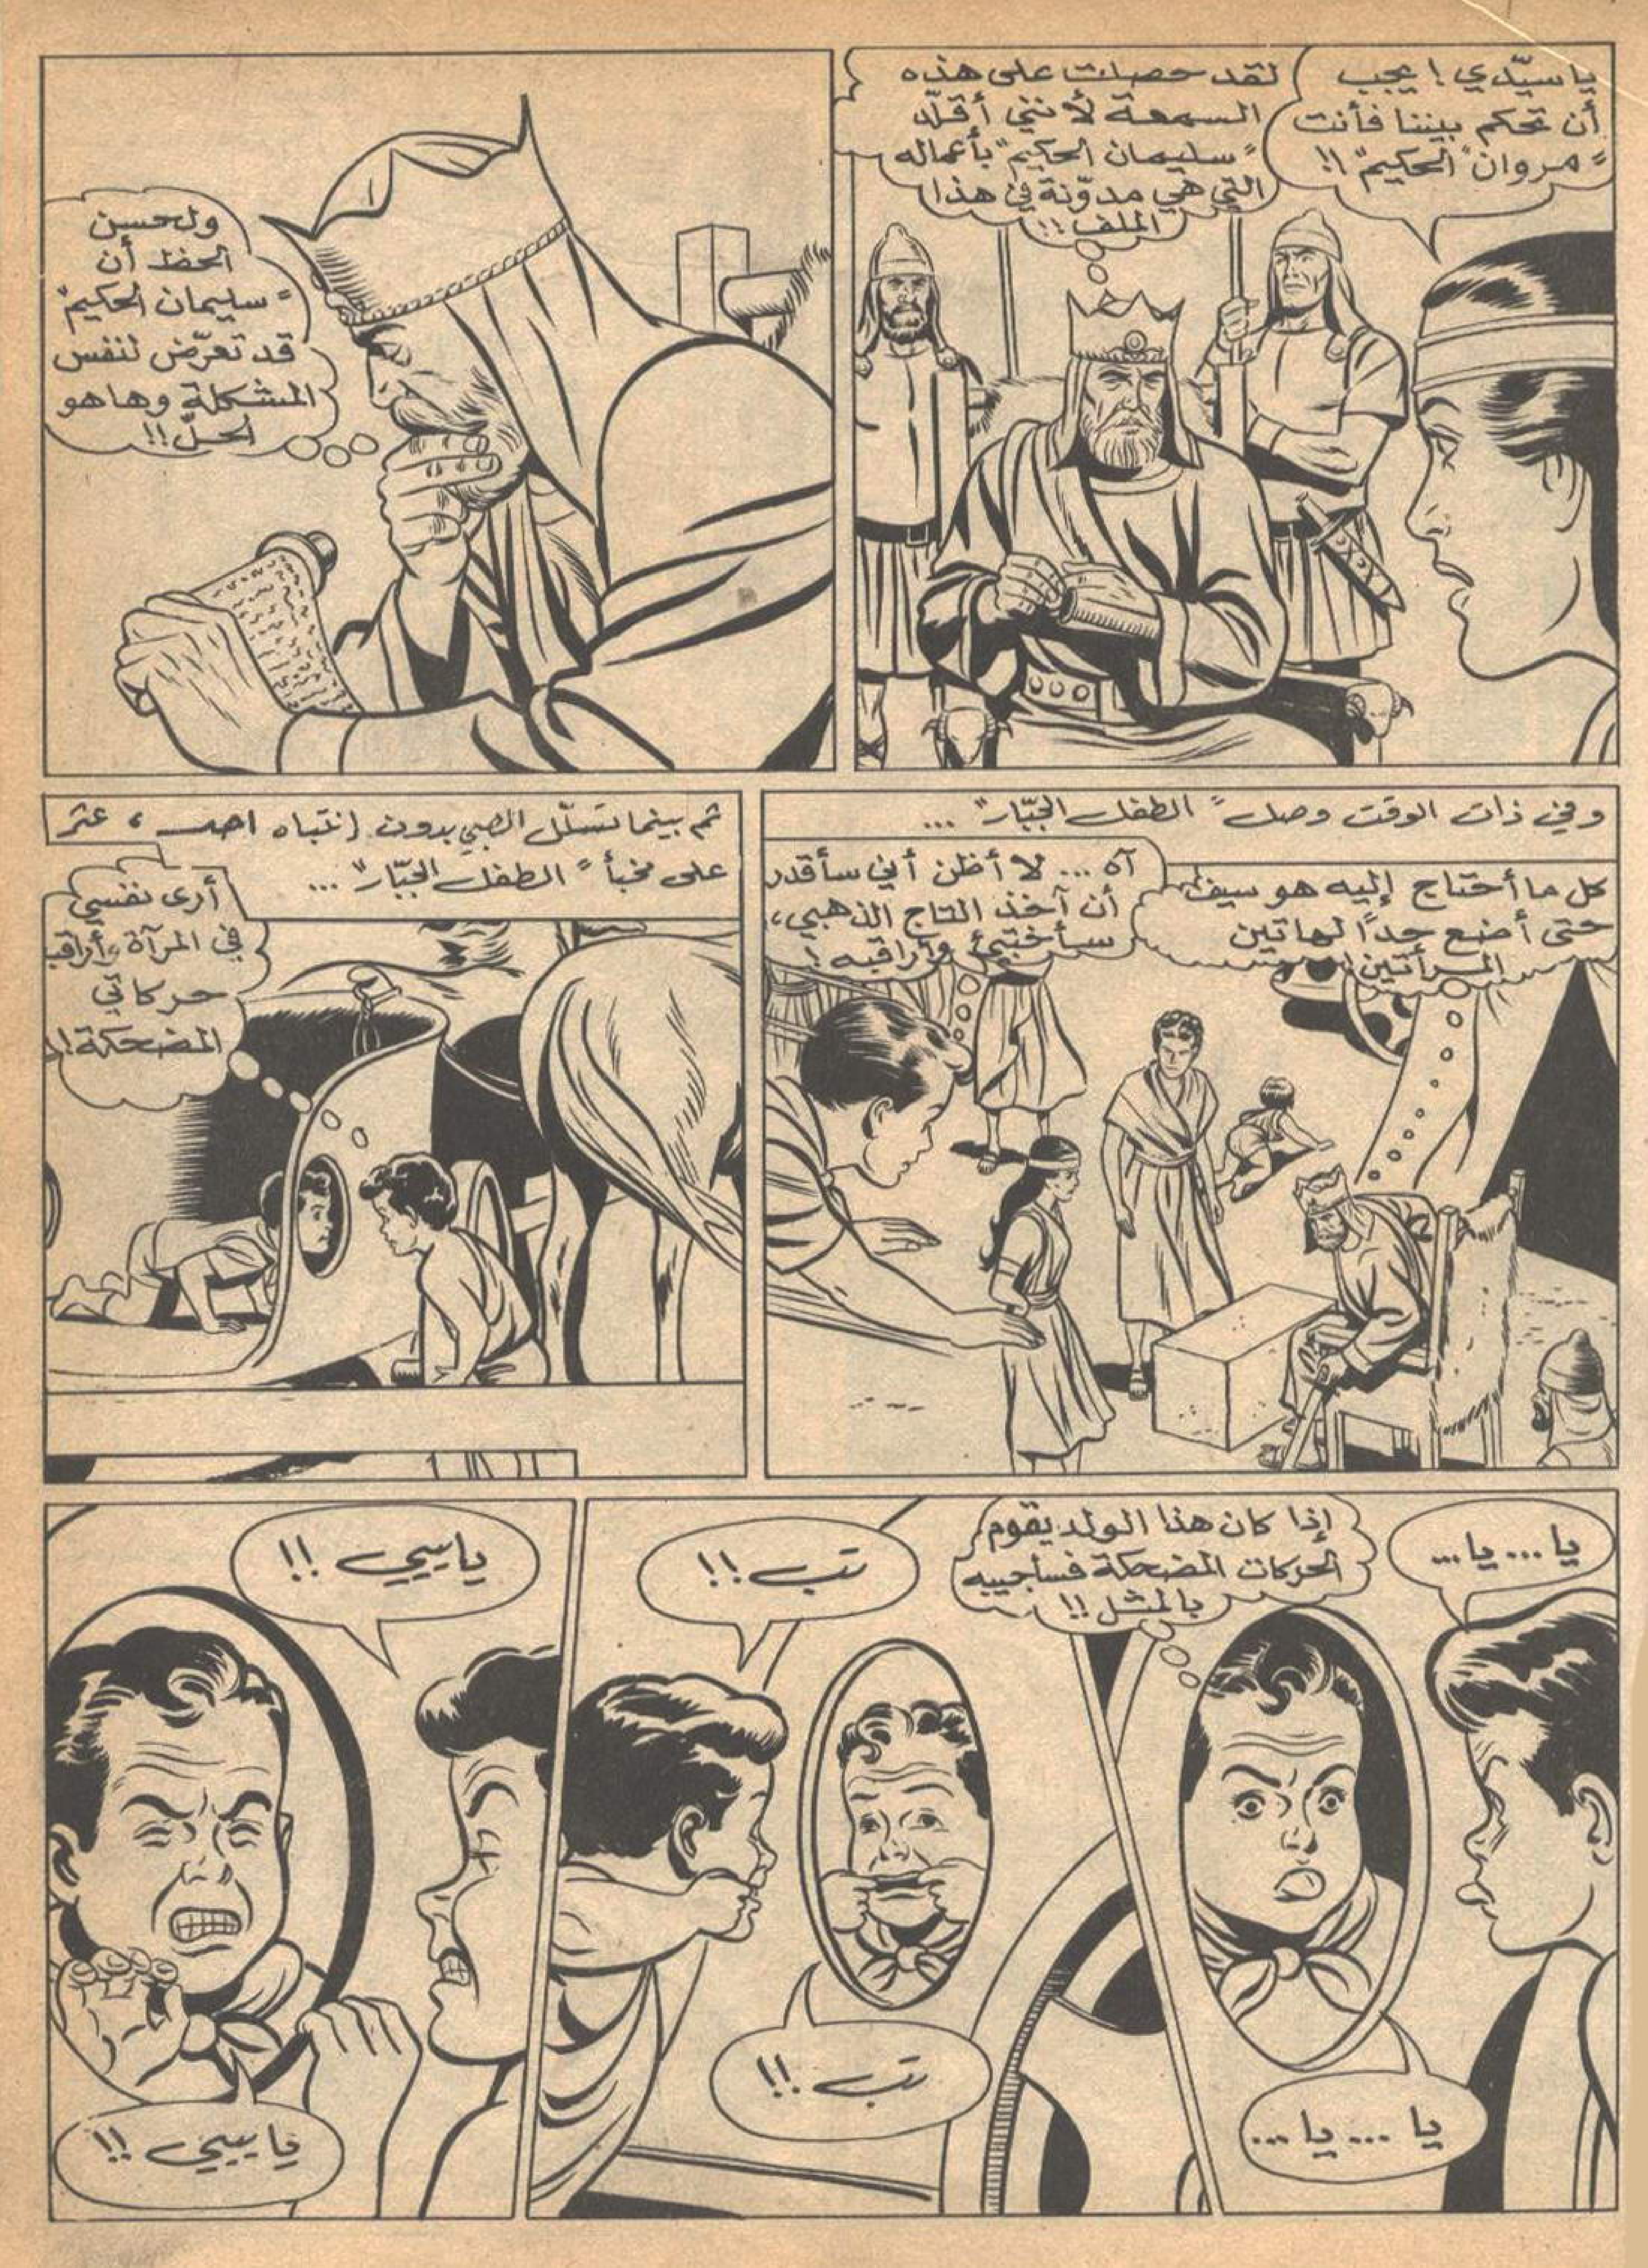 يا سيّدي ! يجب
أن تحكم بيننا فأنت
"مروان الحكيم" !!
لقد حصلت على هذه
السمعة لأنني أقلّد
"سليمان الحكيم" بأعماله
التي هي مدوّنة في هذا
الملف !!
ولحسن
الحظ أن
"سليمان الحكيم"
قد تعرّض لنفس
المشكلة وها هو
الحلّ !!
وفي ذات الوقت وصل "الطفل الجبّار" ...
كل ما أحتاج إليه هو سيف
حتى أضع حدًا لهاتين
المرأتين !
آه ... لا أظن أني سأقدر
أن آخذ التاج الذهبي،
سأختبئ وأراقبه !
ثم بينما تسلّل الصبي بدون إنتباه احد ، عثر
على مخبأ "الطفل الجبّار" ...
أرى نفسي
في المرآة، أراقب
حركاتي
المضحكة !
يا ... يا ...
إذا كان هذا الولد يقوم
الحركات المضحكة فسأجيبه
بالمثل !!
يا ... يا ...
تب !!
تب !!
يا ييي !!
يا ييي !!